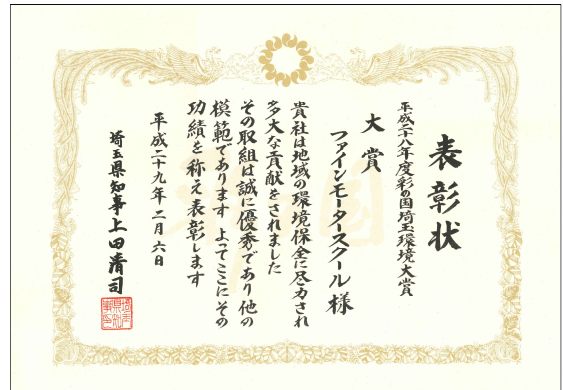 表彰状
平成二十八年度彩の国埼玉環境大賞
大賞
ファインモータースクール様
貴社は地域の環境保全に尽力され
多大な貢献をされました
その取組は誠に優秀であり他の
模範であります よってここにその
功績を称え表彰します
平成二十九年二月六日
埼玉県知事上田清司